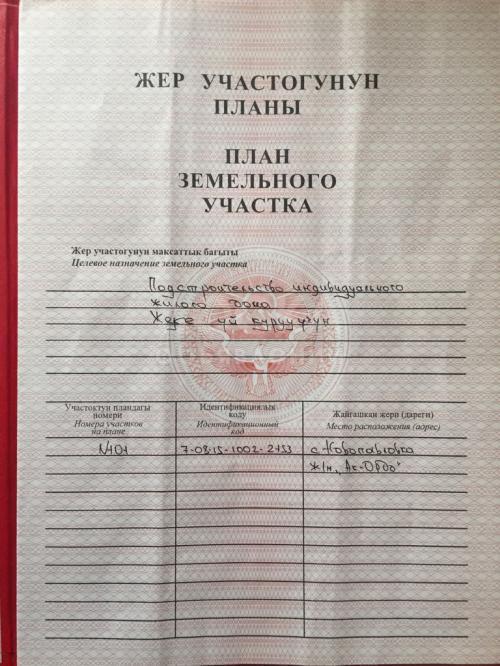 ЖЕР УЧАСТОГУНУН
ПЛАНЫ
ПЛАН
ЗЕМЕЛЬНОГО
УЧАСТКА
Жер участогунун максаттык багыты
Целевое назначение земельного участка
Под строительство индивидуального
жилого дома
Жеке үй куруу үчүн
Участоктун пландагы
номери
Номера участков
на плане
Идентификациялык
коду
Идентификационный
код
Жайгашкан жери (дареги)
Место расположения (адрес)
№101
7-08-15-1002-2753
с. Новопавловка
ж/м "Ак-Ордо"